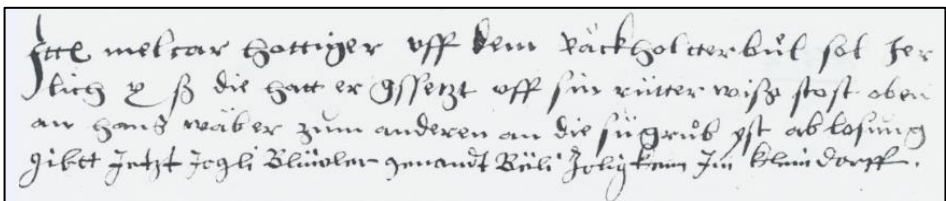 Itte melcar hottiger uff dem räckholtterbůl sol Jer
lich x ß die hatt er gssetzt uff sin rütter wiss stost oben
an hans wäber zum anderen an die sügrůb yst ablosung
gibtt Jetzt Jogli Blüwler genandt Rüli Jm kleindorff.